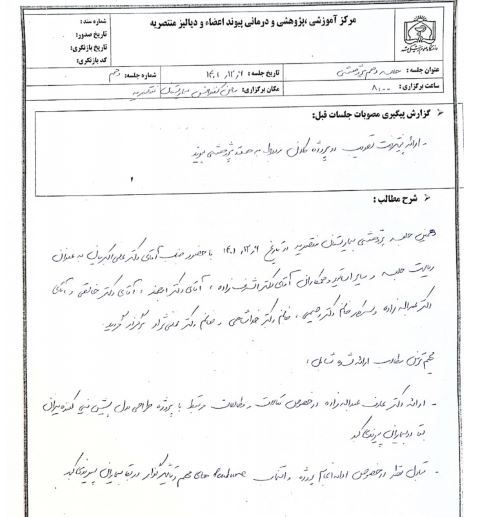 مرکز آموزشی ،پژوهشی و درمانی پیوند اعضاء و دیالیز منتصریه
شماره سند :
تاریخ صدور:
تاریخ بازنگری:
کد بازنگری:
عنوان جلسه : جلسه دهم پژوهشی
تاریخ جلسه : ۱۴۰۱،۱۲،۶
شماره جلسه: دهم
ساعت برگزاری: ۸:۰۰
مکان برگزاری: سالن کنفرانس بیمارستان منتصریه
گزارش پیگیری مصوبات جلسات قبل:
- ارائه پیشرفت پروژه مربوط به هسته پژوهشی پیوند
شرح مطالب :
دهمین جلسه پژوهشی بیمارستان منتصریه در تاریخ ۱۴۰۱،۱۲،۶ با حضور جناب آقای دکتر علی اکبریان به عنوان
ریاست جلسه و سایر اساتید و همکاران آقای دکتر زاده ، آقای دکتر ، آقای دکتر خالقی ، آقای
دکتر عبداله زاده و خانم دکتر رحیمی ، خانم دکتر و خانم دکتر برگزار گردید.
مهم ترین مطالب ارائه شده شامل :
- ارائه دکتر عارف عبداله زاده در خصوص مقالات و مطالعات مرتبط با پروژه طراحی مدل پیش بینی کننده میزان
بقا در بیماران پیوند کبد
- تبادل نظر در خصوص ادامه انجام پروژه و انتخاب های مهم و تاثیرگذار در بقا بیماران پیوند کبد